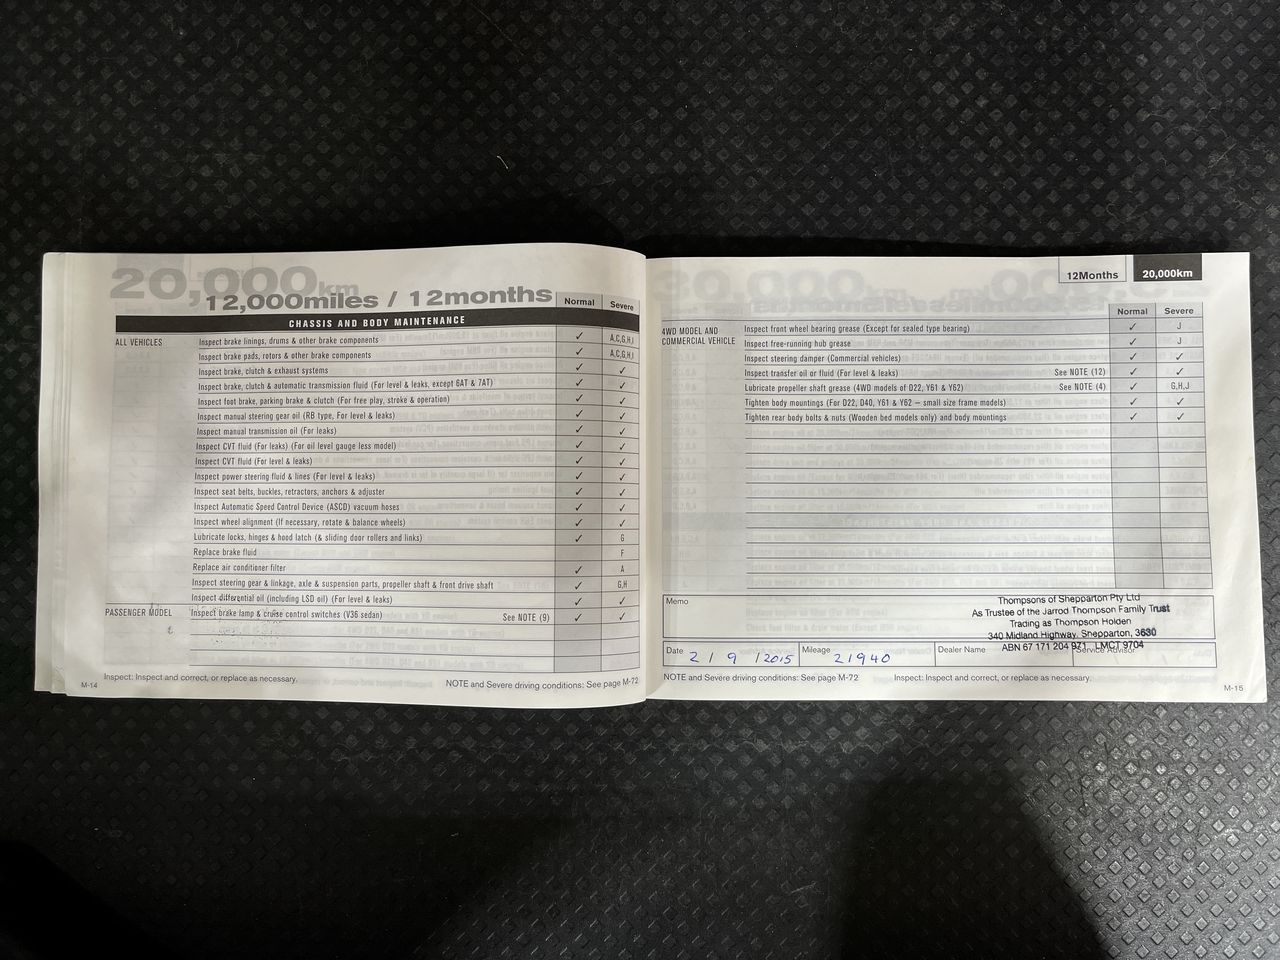 20,000km
12,000miles / 12months
Normal Severe
CHASSIS AND BODY MAINTENANCE
ALL VEHICLES Inspect brake linings, drums & other brake components ✓ A,C,G,H,I
Inspect brake pads, rotors & other brake components ✓ A,C,G,H,I
Inspect brake, clutch & exhaust systems ✓ ✓
Inspect brake, clutch & automatic transmission fluid (For level & leaks, except 6AT & 7AT) ✓ ✓
Inspect foot brake, parking brake & clutch (For free play, stroke & operation) ✓ ✓
Inspect manual steering gear oil (RB type, For level & leaks) ✓ ✓
Inspect manual transmission oil (For leaks) ✓ ✓
Inspect CVT fluid (For leaks) (For oil level gauge less model) ✓ ✓
Inspect CVT fluid (For level & leaks) ✓ ✓
Inspect power steering fluid & lines (For level & leaks) ✓ ✓
Inspect seat belts, buckles, retractors, anchors & adjuster ✓ ✓
Inspect Automatic Speed Control Device (ASCD) vacuum hoses ✓ ✓
Inspect wheel alignment (If necessary, rotate & balance wheels) ✓ ✓
Lubricate locks, hinges & hood latch (& sliding door rollers and links) ✓ G
Replace brake fluid F
Replace air conditioner filter ✓ A
Inspect steering gear & linkage, axle & suspension parts, propeller shaft & front drive shaft ✓ G,H
Inspect differential oil (including LSD oil) (For level & leaks) ✓ ✓
PASSENGER MODEL Inspect brake lamp & cruise control switches (V36 sedan) See NOTE (9) ✓ ✓
Inspect: Inspect and correct, or replace as necessary. NOTE and Severe driving conditions: See page M-72
M-14
12Months 20,000km
Normal Severe
4WD MODEL AND COMMERCIAL VEHICLE Inspect front wheel bearing grease (Except for sealed type bearing) ✓ J
Inspect free-running hub grease ✓ J
Inspect steering damper (Commercial vehicles) ✓ ✓
Inspect transfer oil or fluid (For level & leaks) See NOTE (12) ✓ ✓
Lubricate propeller shaft grease (4WD models of D22, Y61 & Y62) See NOTE (4) ✓ G,H,J
Tighten body mountings (For D22, D40, Y61 & Y62 – small size frame models) ✓ ✓
Tighten rear body bolts & nuts (Wooden bed models only) and body mountings ✓ ✓
Memo
Thompsons of Shepparton Pty Ltd
As Trustee of the Jarrod Thompson Family Trust
Trading as Thompson Holden
340 Midland Highway, Shepparton, 3630
ABN 67 171 204 971 LMCT 9704
Date 2 / 9 / 2015 Mileage 21940 Dealer Name Service Advisor
NOTE and Severe driving conditions: See page M-72 Inspect: Inspect and correct, or replace as necessary.
M-15